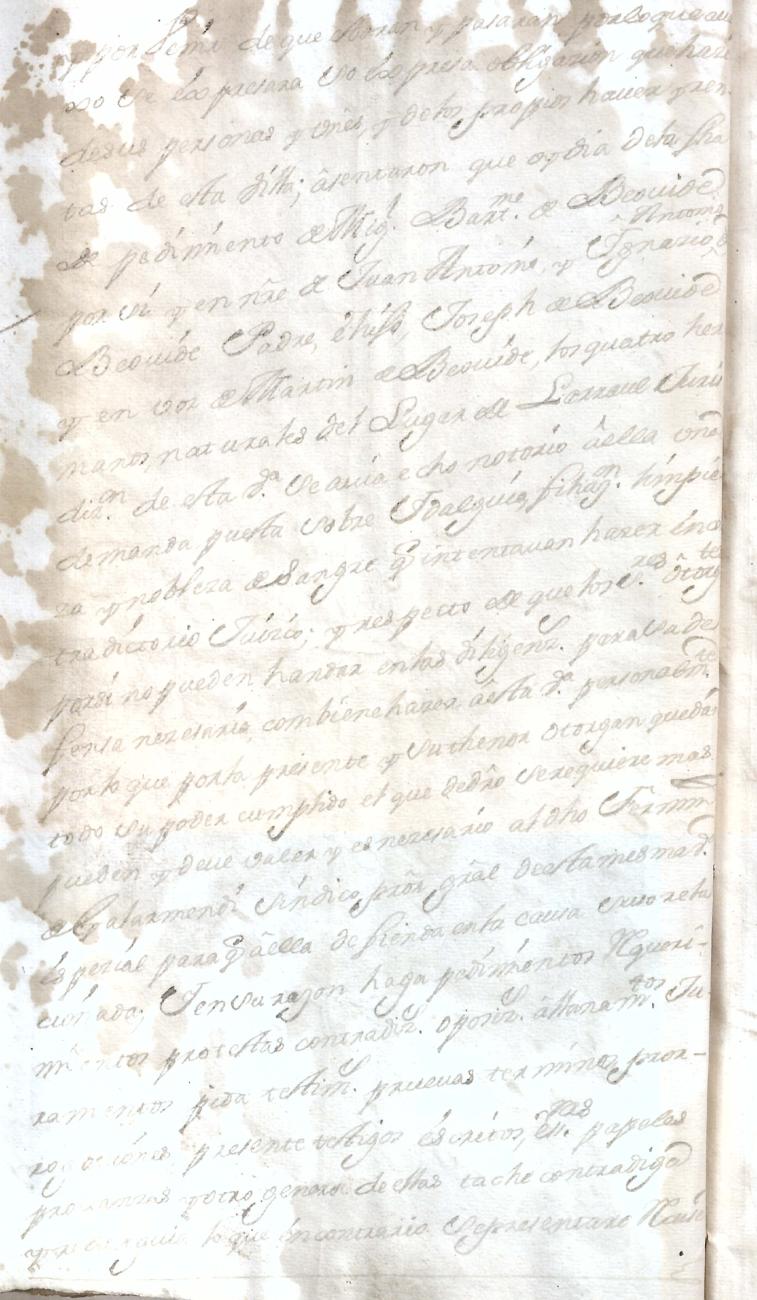 y por firme de que estaran y pasaran por lo que au
xo se expresara so expresa obligazion que hazen
de sus personas y vnes, y de los propios haver y ren
tas de esta Villa; asentaron que oy dia de la fha
de pedimento de Mig.l Bart.me de Beovide
por si y en nre de Juan Antonio, y Ignazio Antonio de
Beovide Padre, e hijo, Joseph de Beovide
y en voz de Martin de Beovide, los quatro her
manos naturales del Lugar de Larraul Juris
diz.on de esta d.a se avia echo notorio a ella vna
demanda puesta sobre Idalguia, filiaz.on limpie
za y nobleza de sangre q intentavan hazer en con
tradictorio Juizio; y respecto de que los s.res otorg.tes
por si no pueden handar en las diligenz.s para la de
fensa nezesaria, combiene hazer a esta d.a personalm.te
por lo que por la presente y su thenor otorgan que dan
todo su poder cumplido el que de dro se requiere mas
pueden y deve valer y es nezesario al dho Fermin
de Galarmendi sindico pror gral de esta mesma d.a
espezial para q a ella defienda en la causa suso rela
cionada; Y en su razon haga pedimentos Requeri-
mientos protestas contradiz.s oposiz.s allanam.tos Ju-
ramentos pida testim.s pruevas terminos pror-
rogaciones presente testigos escritos, ess.ras papeles
provanzas y otro genero de ellas tache contradiga
y redarguia lo que en contrario se presentare Recuse